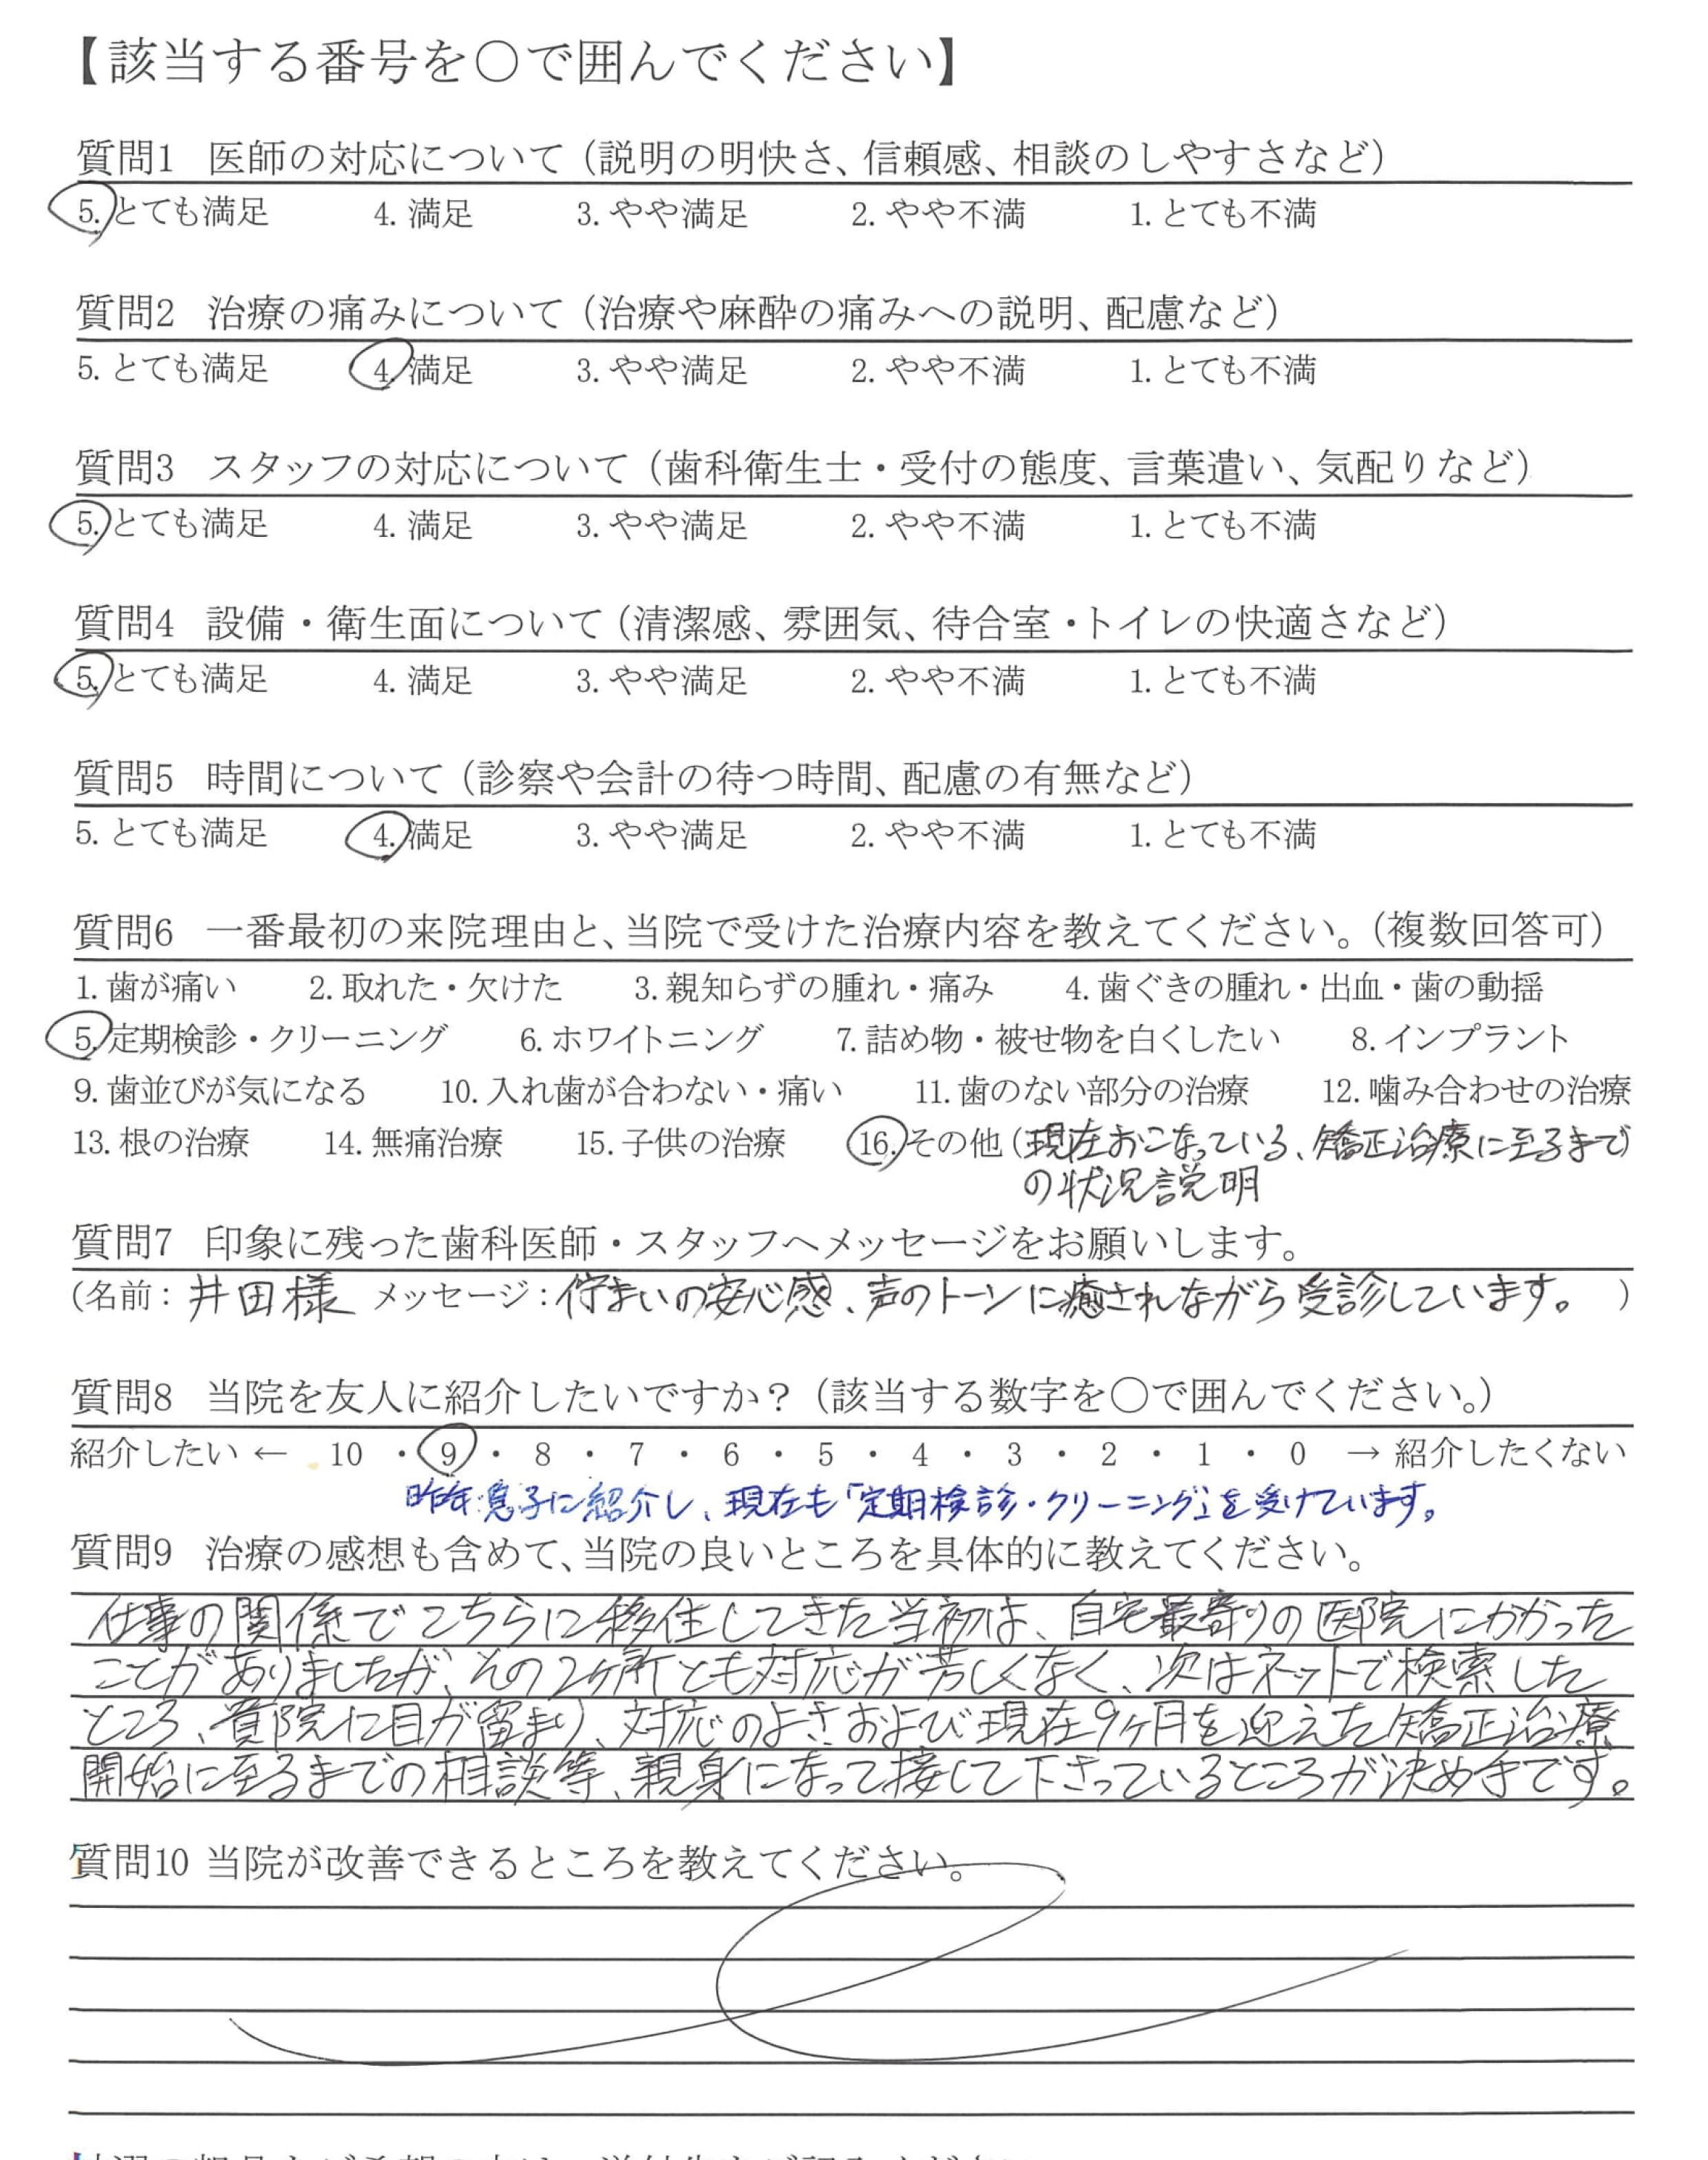 【該当する番号を○で囲んでください】
質問1 医師の対応について（説明の明快さ、信頼感、相談のしやすさなど）
5. とても満足 4. 満足 3. やや満足 2. やや不満 1. とても不満
質問2 治療の痛みについて（治療や麻酔の痛みへの説明、配慮など）
5. とても満足 4. 満足 3. やや満足 2. やや不満 1. とても不満
質問3 スタッフの対応について（歯科衛生士・受付の態度、言葉遣い、気配りなど）
5. とても満足 4. 満足 3. やや満足 2. やや不満 1. とても不満
質問4 設備・衛生面について（清潔感、雰囲気、待合室・トイレの快適さなど）
5. とても満足 4. 満足 3. やや満足 2. やや不満 1. とても不満
質問5 時間について（診察や会計の待つ時間、配慮の有無など）
5. とても満足 4. 満足 3. やや満足 2. やや不満 1. とても不満
質問6 一番最初の来院理由と、当院で受けた治療内容を教えてください。（複数回答可）
1. 歯が痛い 2. 取れた・欠けた 3. 親知らずの腫れ・痛み 4. 歯ぐきの腫れ・出血・歯の動揺
5. 定期検診・クリーニング 6. ホワイトニング 7. 詰め物・被せ物を白くしたい 8. インプラント
9. 歯並びが気になる 10. 入れ歯が合わない・痛い 11. 歯のない部分の治療 12. 噛み合わせの治療
13. 根の治療 14. 無痛治療 15. 子供の治療 16. その他（現在おこなっている、矯正治療に至るまで）
の状況説明
質問7 印象に残った歯科医師・スタッフへメッセージをお願いします。
（名前：井田様 メッセージ：佇まいの安心感、声のトーンに癒されながら受診しています。）
質問8 当院を友人に紹介したいですか？（該当する数字を○で囲んでください。）
紹介したい ← 10 ・ 9 ・ 8 ・ 7 ・ 6 ・ 5 ・ 4 ・ 3 ・ 2 ・ 1 ・ 0 → 紹介したくない
昨年息子に紹介し、現在も「定期検診・クリーニング」を受けています。
質問9 治療の感想も含めて、当院の良いところを具体的に教えてください。
仕事の関係でこちらに移住してきた当初は、自宅最寄りの医院にかかった
ことがありましたが、その2ヶ所とも対応が芳しくなく、次はネットで検索した
ところ、貴院に目が留まり、対応のよさおよび現在9ヶ月を迎えた矯正治療
開始に至るまでの相談等、親身になって接して下さっているところが決め手です。
質問10 当院が改善できるところを教えてください。